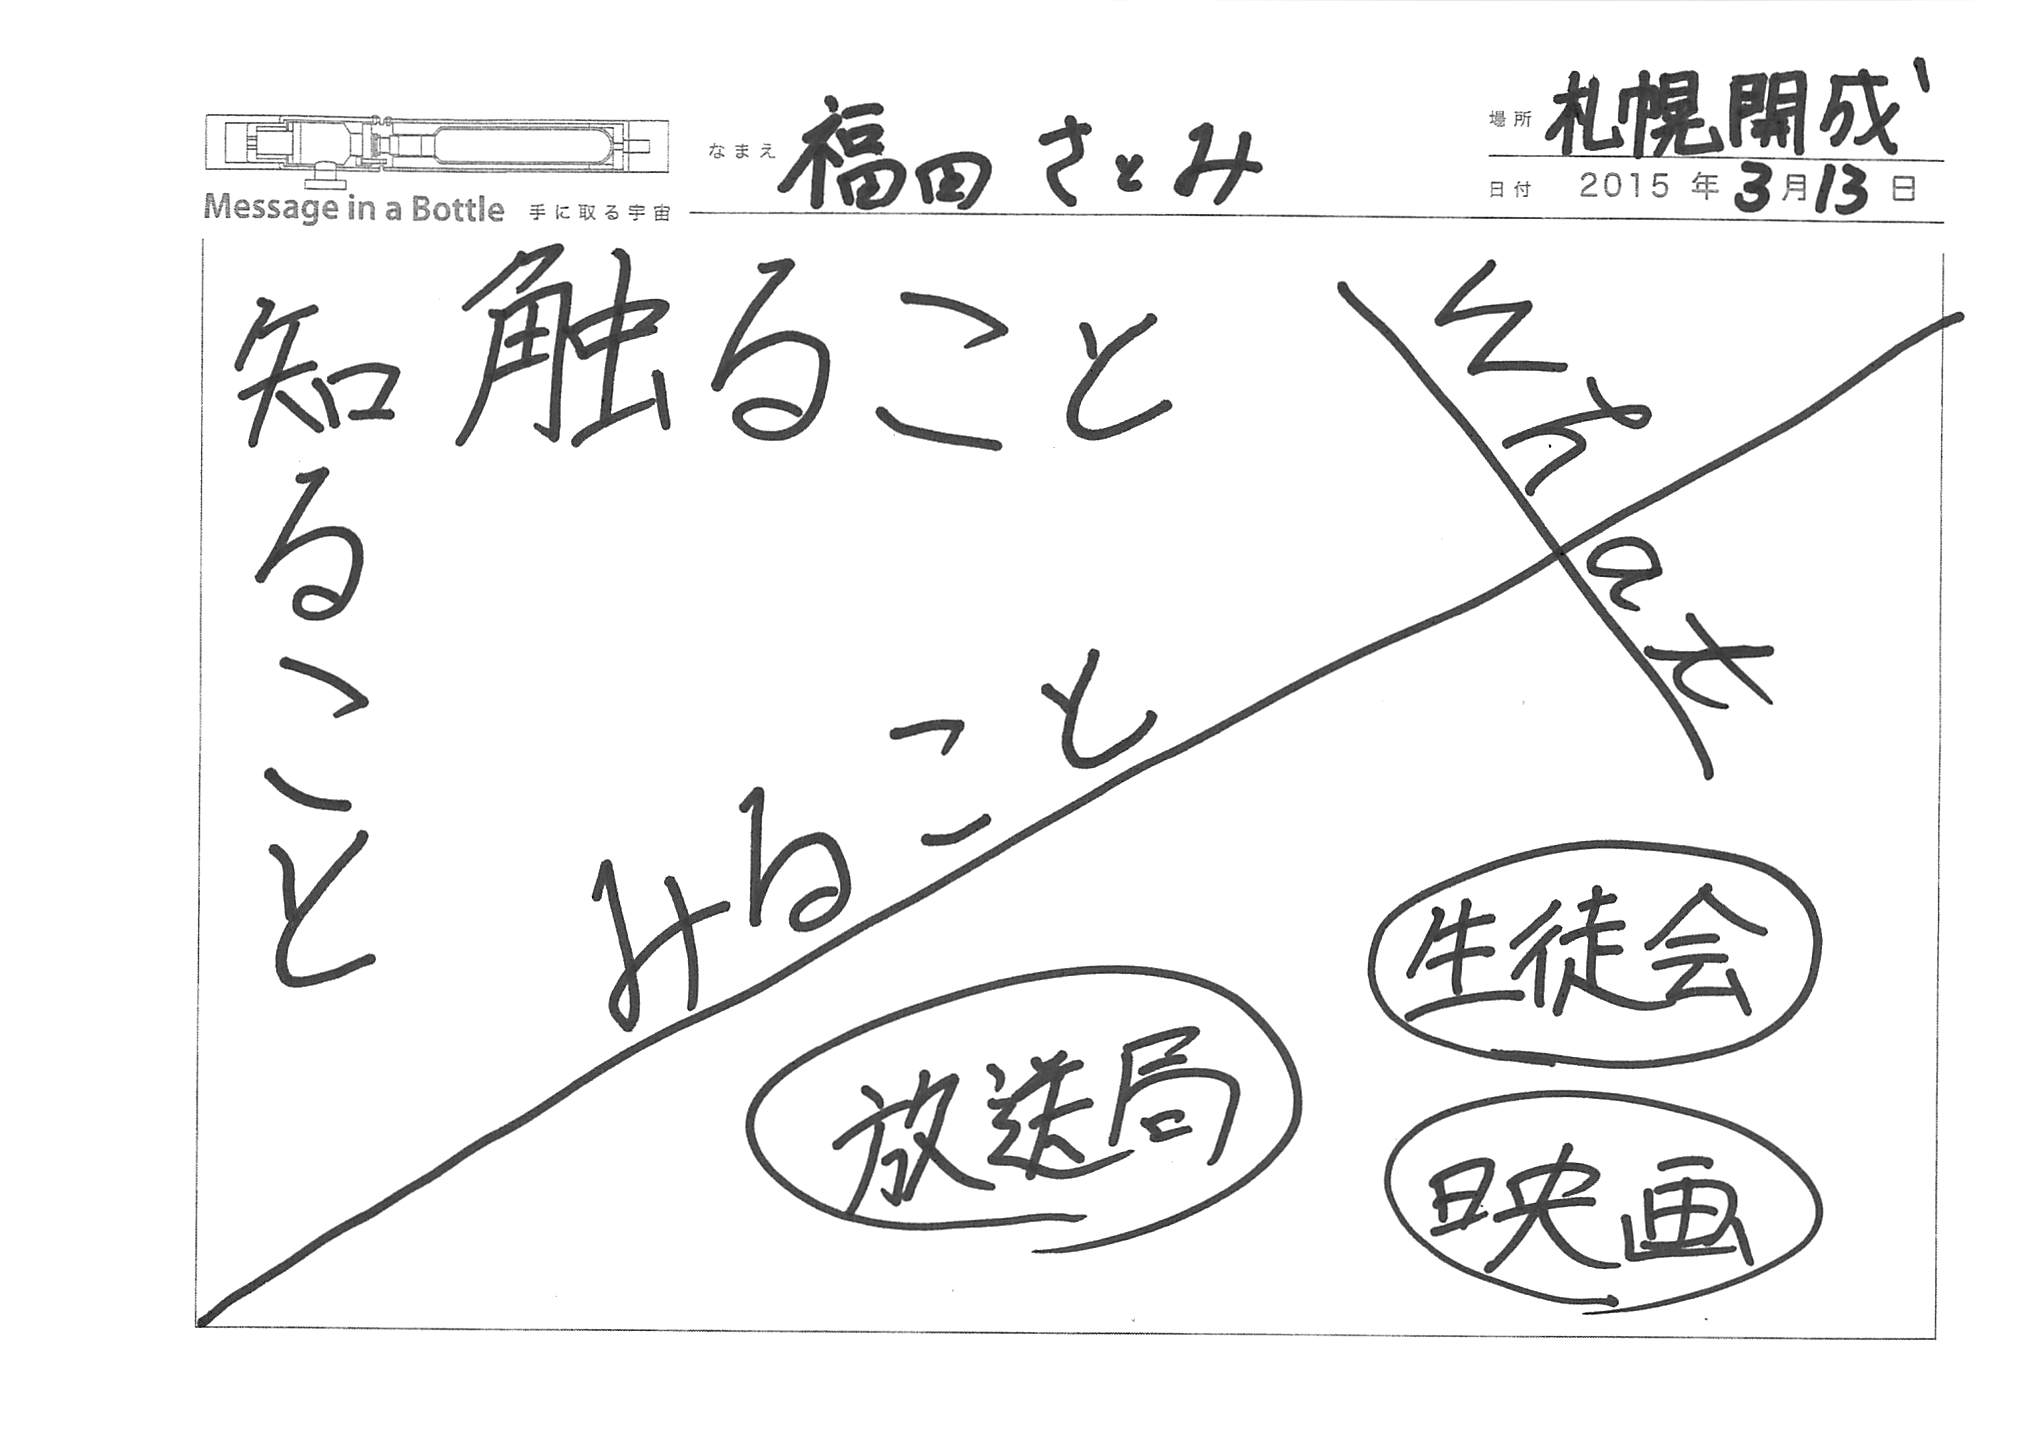 Message in a Bottle 手に取る宇宙
なまえ 福田 さとみ
場所 札幌開成
日付 2015 年 3 月 13 日
知ること
触ること
みること
What
放送局
生徒会
映画